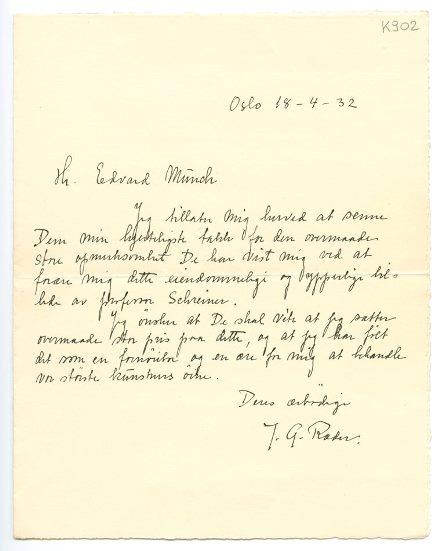 K902
Oslo 18-4-32
Hr. Edvard Münch
Jeg tillater mig herved at senne
Dem min hjerteligste takk for den overmaade
store opmerksomhet De har vist mig ved at
forære mig dette eiendommelige og ypperlige bil-
lede av professor Schreiner.
Jeg ønsker at De skal vite at jeg sætter
overmaade stor pris paa dette, og at jeg har følt
det som en fornøielse og en ære for mig at behandle
vor største kunstners öine.
Deres ærbödige
J. G. Ræder.